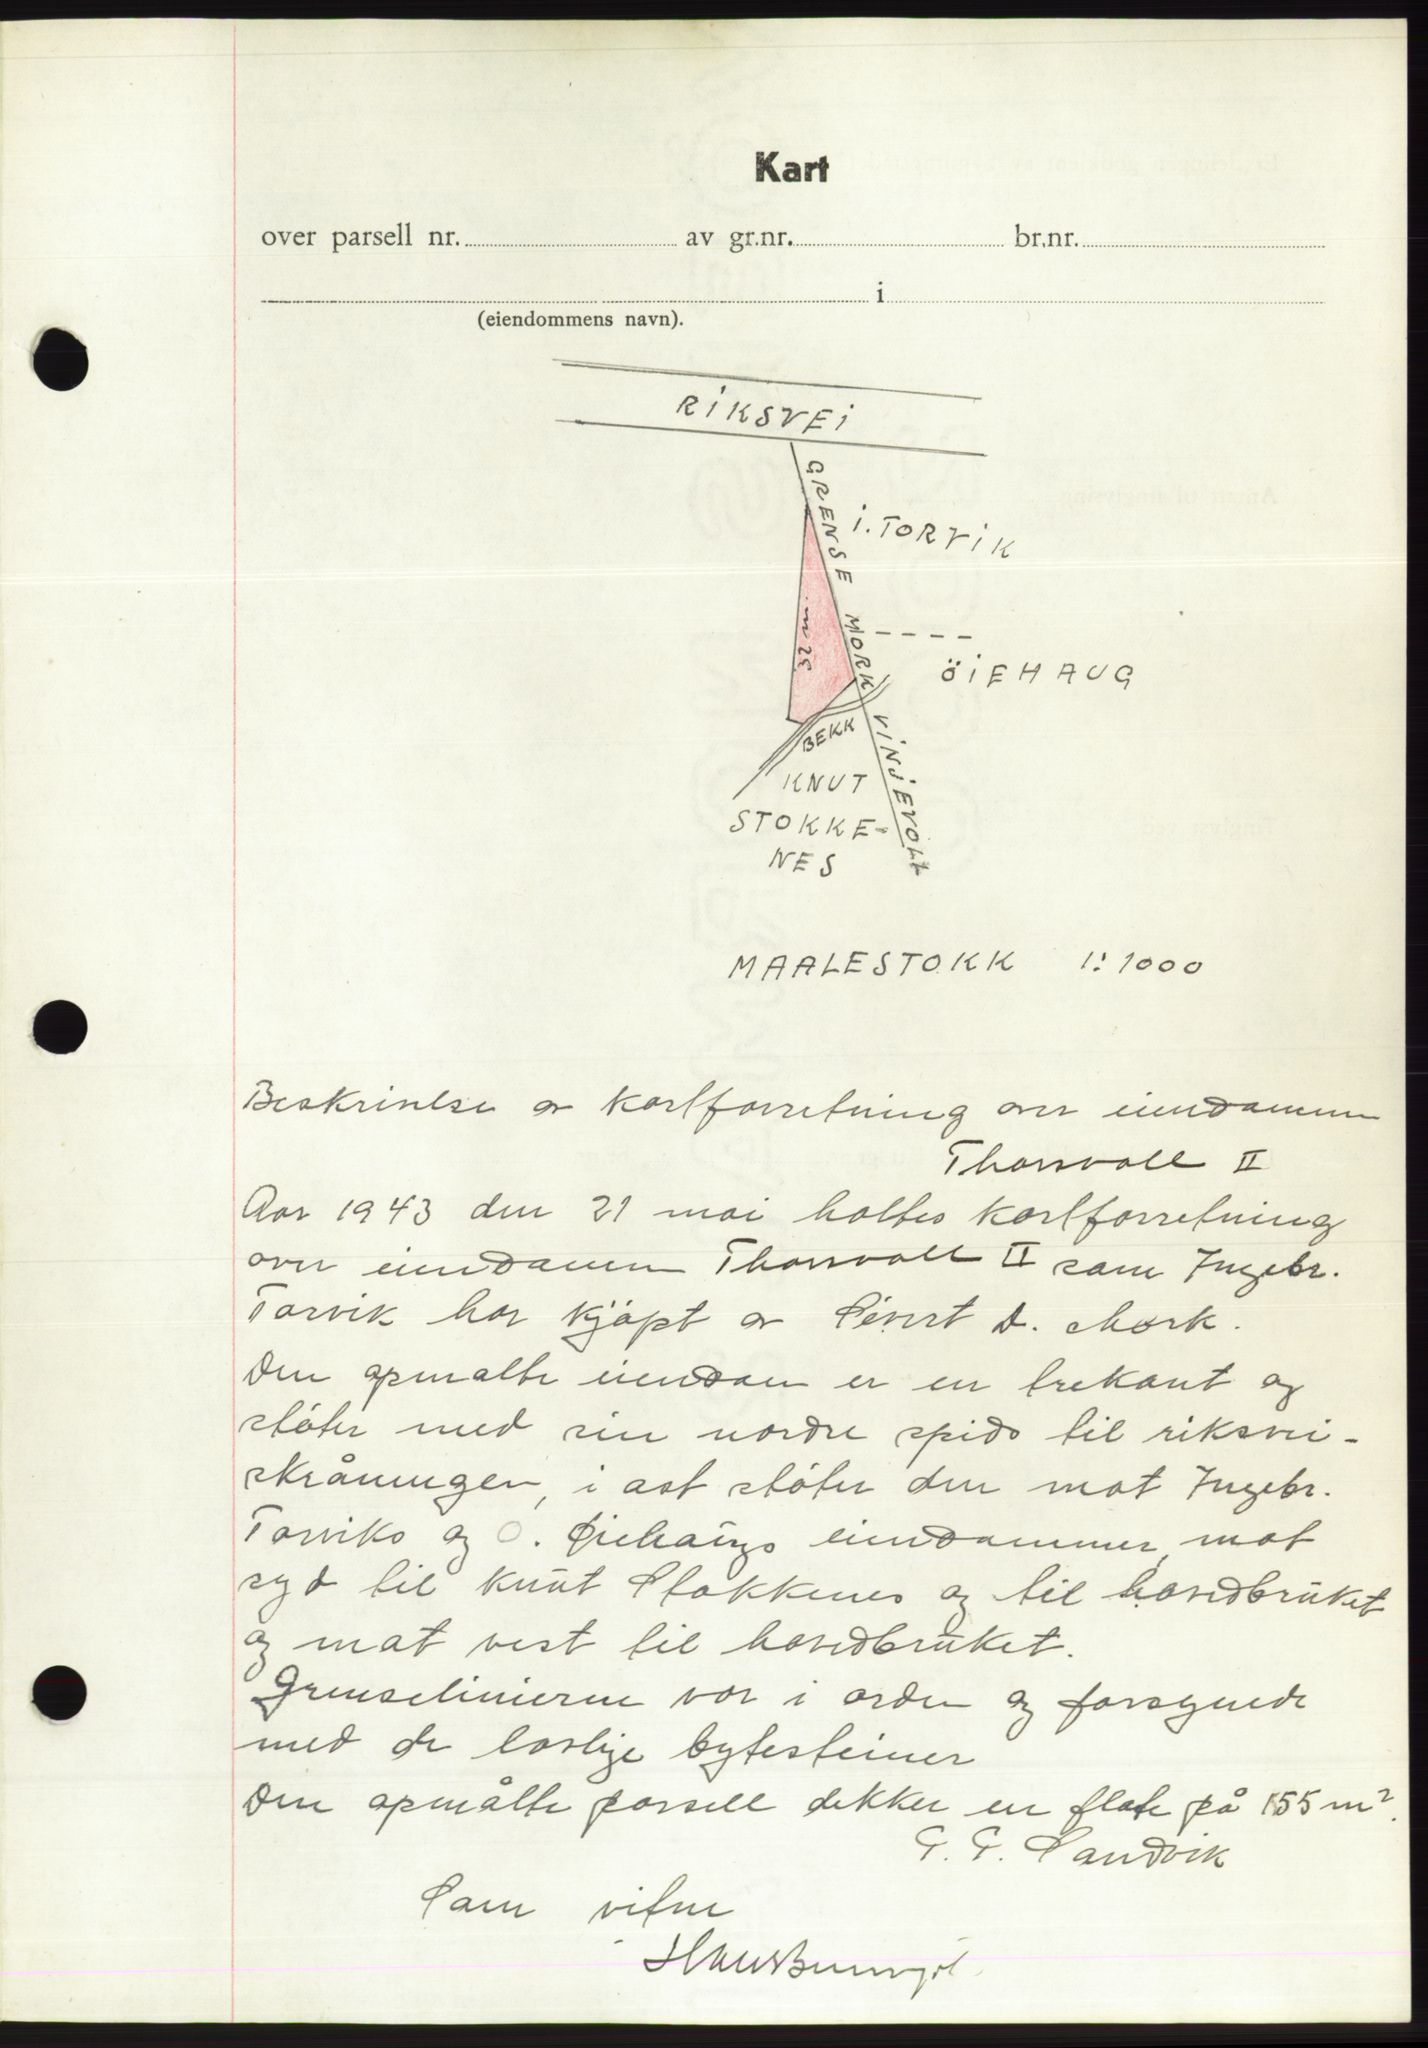 Kart
over parsell nr. av gr.nr. br.nr.
i
(eiendommens navn).
RIKSVEI
GRENSE MORK VINJEVOLL
I. TORVIK
m 25
ÖIEHAUG
BEKK
KNUT
STOKKE-
NES
MAALESTOKK 1:1000
Beskrivelse av kartforretning over eiendommen
Thorsvoll II
Aar 1943 den 21 mai holtes kartforretning
over eiendomen Thorsvoll II som Ingebr.
Torvik har kjöpt av Sivert D. Mork.
Den opmalte eiendom er en trekant og
stöter med sin nordre spids til riksvei-
skråningen, i ost stöter den mot Ingebr.
Torviks og O. Öiehaugs eiendommer, mot
syd til Knut Stokkenes og til hovedbruket
og mot vest til hovedbruket.
Grenselinierne var i orden og forsynede
med de lovlige bytesteiner
Den opmålte parsell dekker en flate på 155 m².
Sandvik
Som vitne